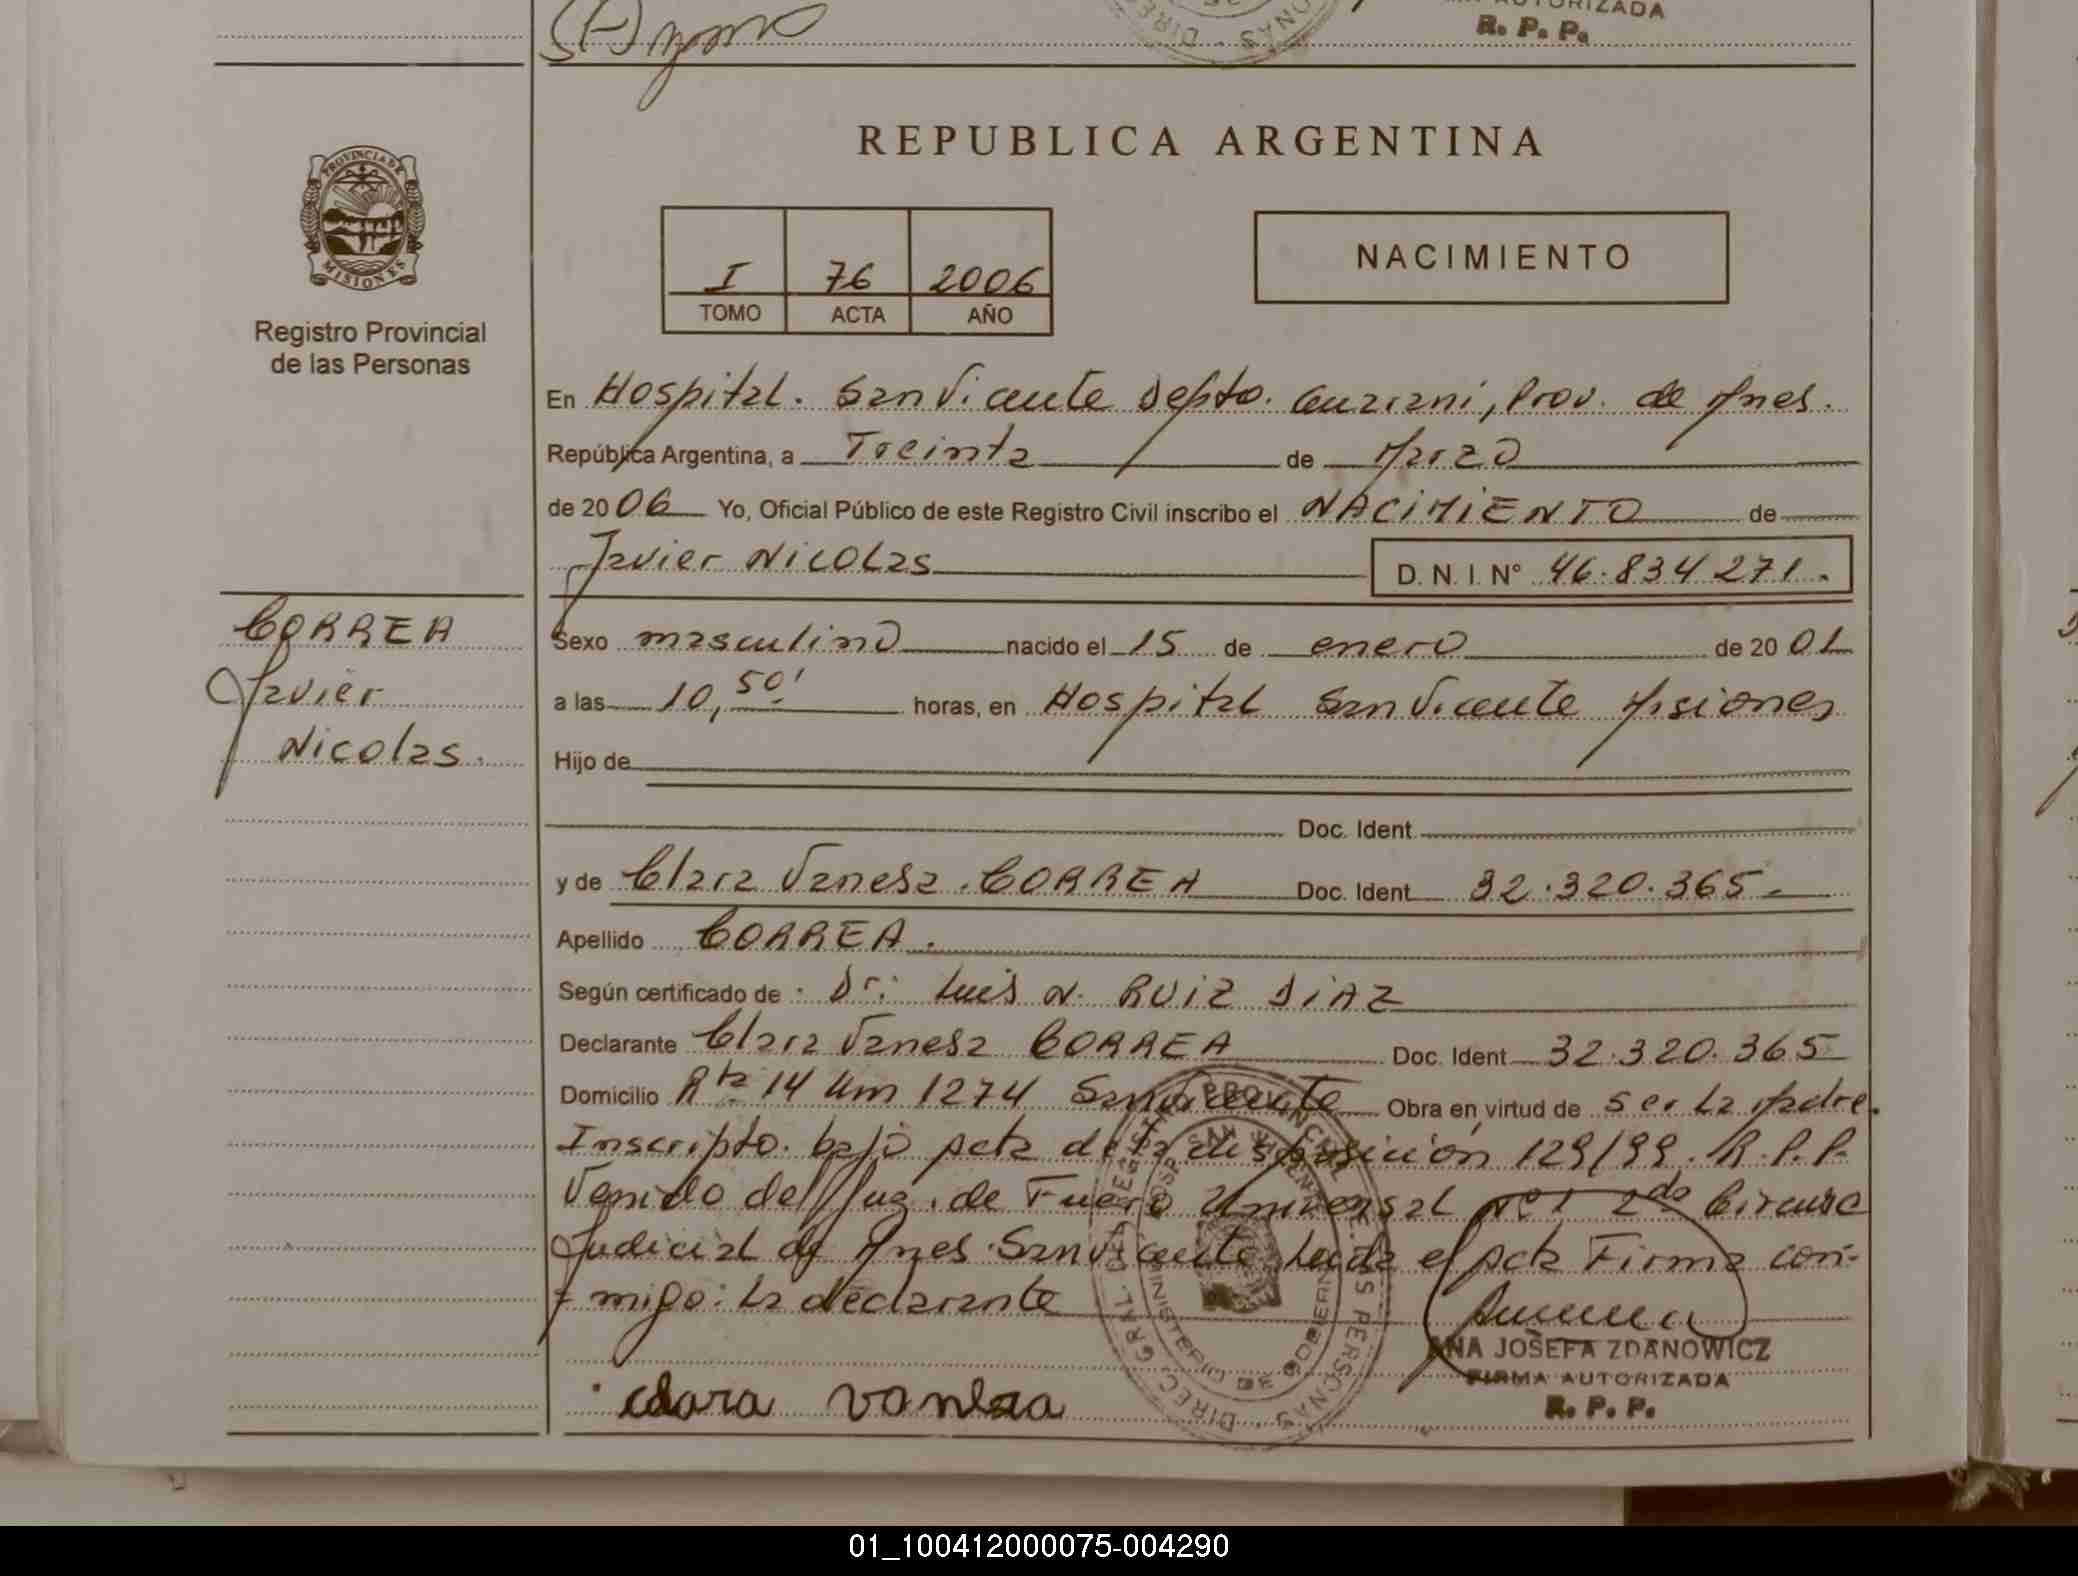 AUTORIZADA
R. P. P.
REPUBLICA ARGENTINA
PROVINCIA DE
MISIONES
Registro Provincial
de las Personas
I 76 2006
TOMO ACTA AÑO
NACIMIENTO
En Hospital. San Vicente Depto. Guarani, Prov. de Mnes.
República Argentina, a Treinta de Marzo
de 2006 Yo, Oficial Público de este Registro Civil inscribo el NACIMIENTO de
Javier Nicolas D. N. I. N° 46.834 271.
CORREA
Javier
Nicolas.
Sexo masculino nacido el 15 de enero de 2001
a las 10,50' horas, en Hospital San Vicente Misiones
Hijo de
Doc. Ident
y de Clara Vanesa CORREA Doc. Ident 32.320.365.
Apellido CORREA.
Según certificado de Dr: Luis N. RUIZ DIAZ
Declarante Clara Vanesa CORREA Doc. Ident 32.320.365
Domicilio Rta 14 Km 1274 San Vicente Obra en virtud de ser la Madre.
Inscripto. bajo acta de la disposición 129/99. R.P.P.
Venido del Juz. de Fuero Universal N°1 2da Circunc
Judicial de Mnes. San Vicente Leida el acta Firma con-
migo: la declarante
clara vanesa
ANA JOSEFA ZDANOWICZ
FIRMA AUTORIZADA
R. P. P.
01_100412000075-004290